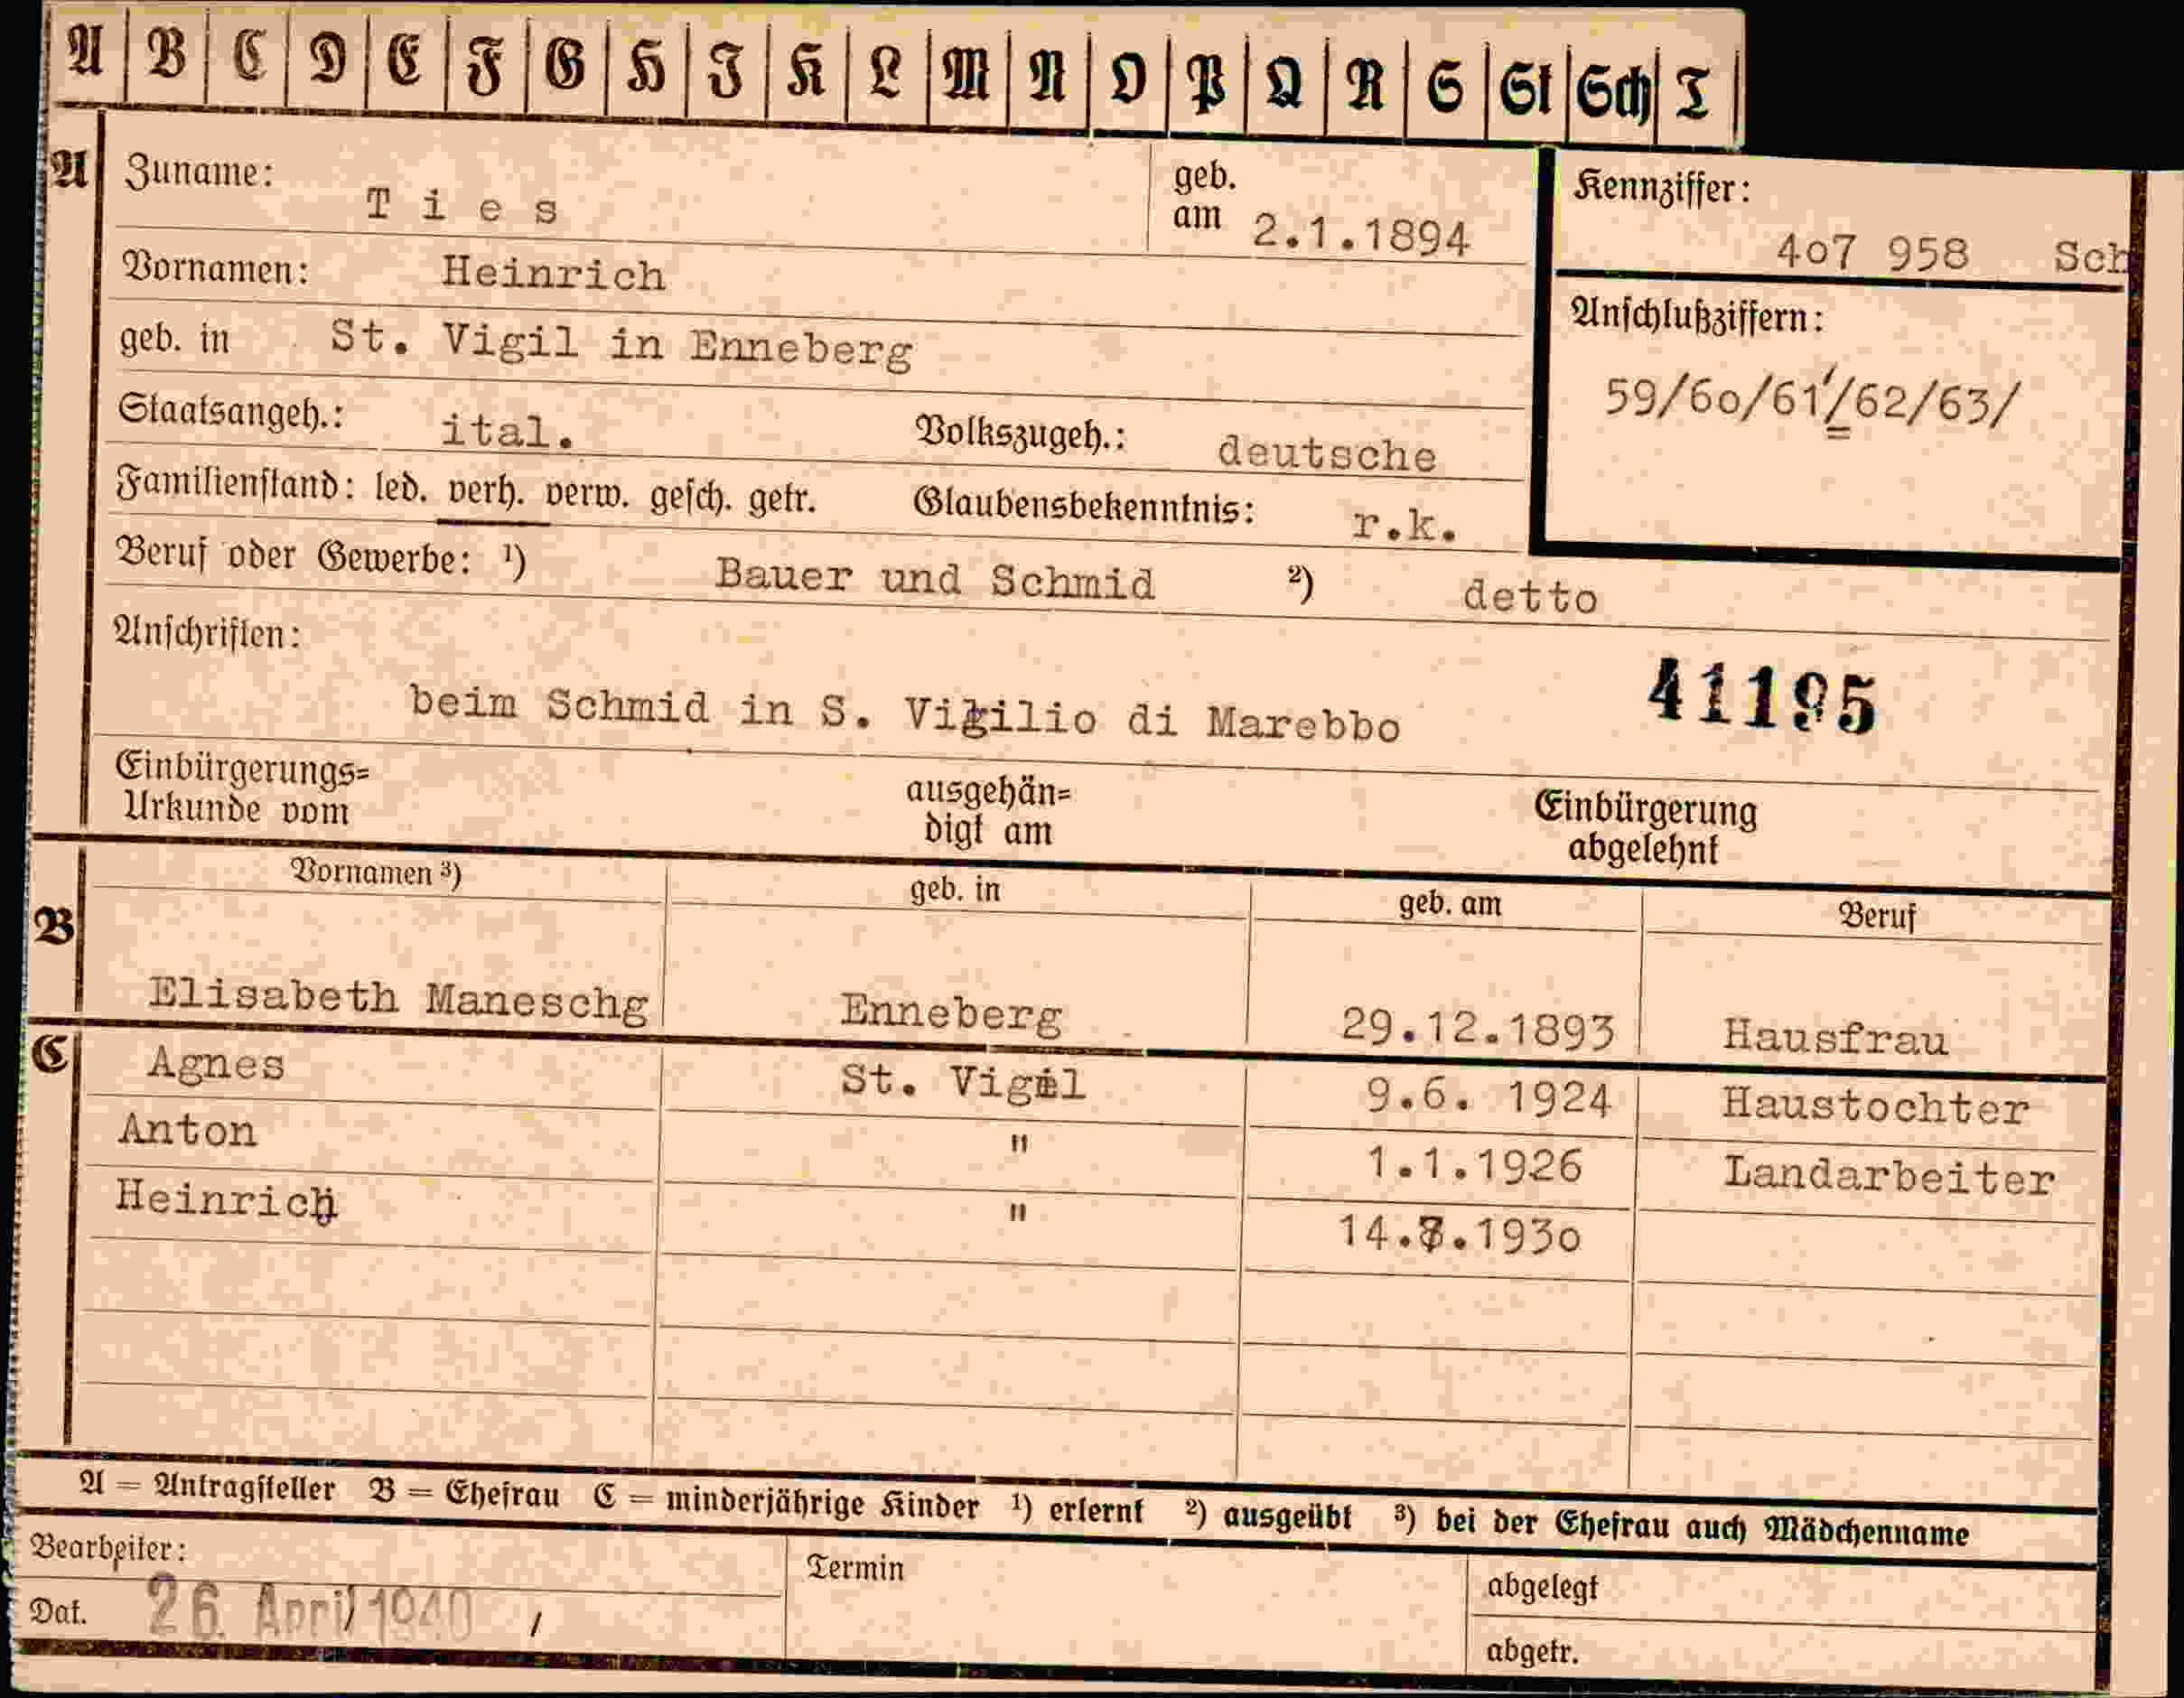 A B C D E F G H J K L M N O P Q R S St Sch T
A Zuname: Ties geb. am 2.1.1894 Kennziffer:
407 958 Sch
Vornamen: Heinrich
Anschlußziffern:
geb. in St. Vigil in Enneberg
59/60/61/62/63/
Staatsangeh.: ital. Volkszugeh.: deutsche
Familienstand: led. verh. verw. gesch. getr. Glaubensbekenntnis: r.k.
Beruf oder Gewerbe: ¹) Bauer und Schmid ²) detto
Anschriften:
41195
beim Schmid in S. Vigilio di Marebbo
Einbürgerungs= Urkunde vom ausgehän= digt am Einbürgerung abgelehnt
B Vornamen ³) geb. in geb. am Beruf
Elisabeth Maneschg Enneberg 29.12.1893 Hausfrau
C Agnes St. Vigil 9.6. 1924 Haustochter
Anton " 1.1.1926 Landarbeiter
Heinrich " 14. .1930
A = Antragsteller B = Ehefrau C = minderjährige Kinder ¹) erlernt ²) ausgeübt ³) bei der Ehefrau auch Mädchenname
Bearbeiter: Termin abgelegt
Dat. 26. April 1940 / abgetr.